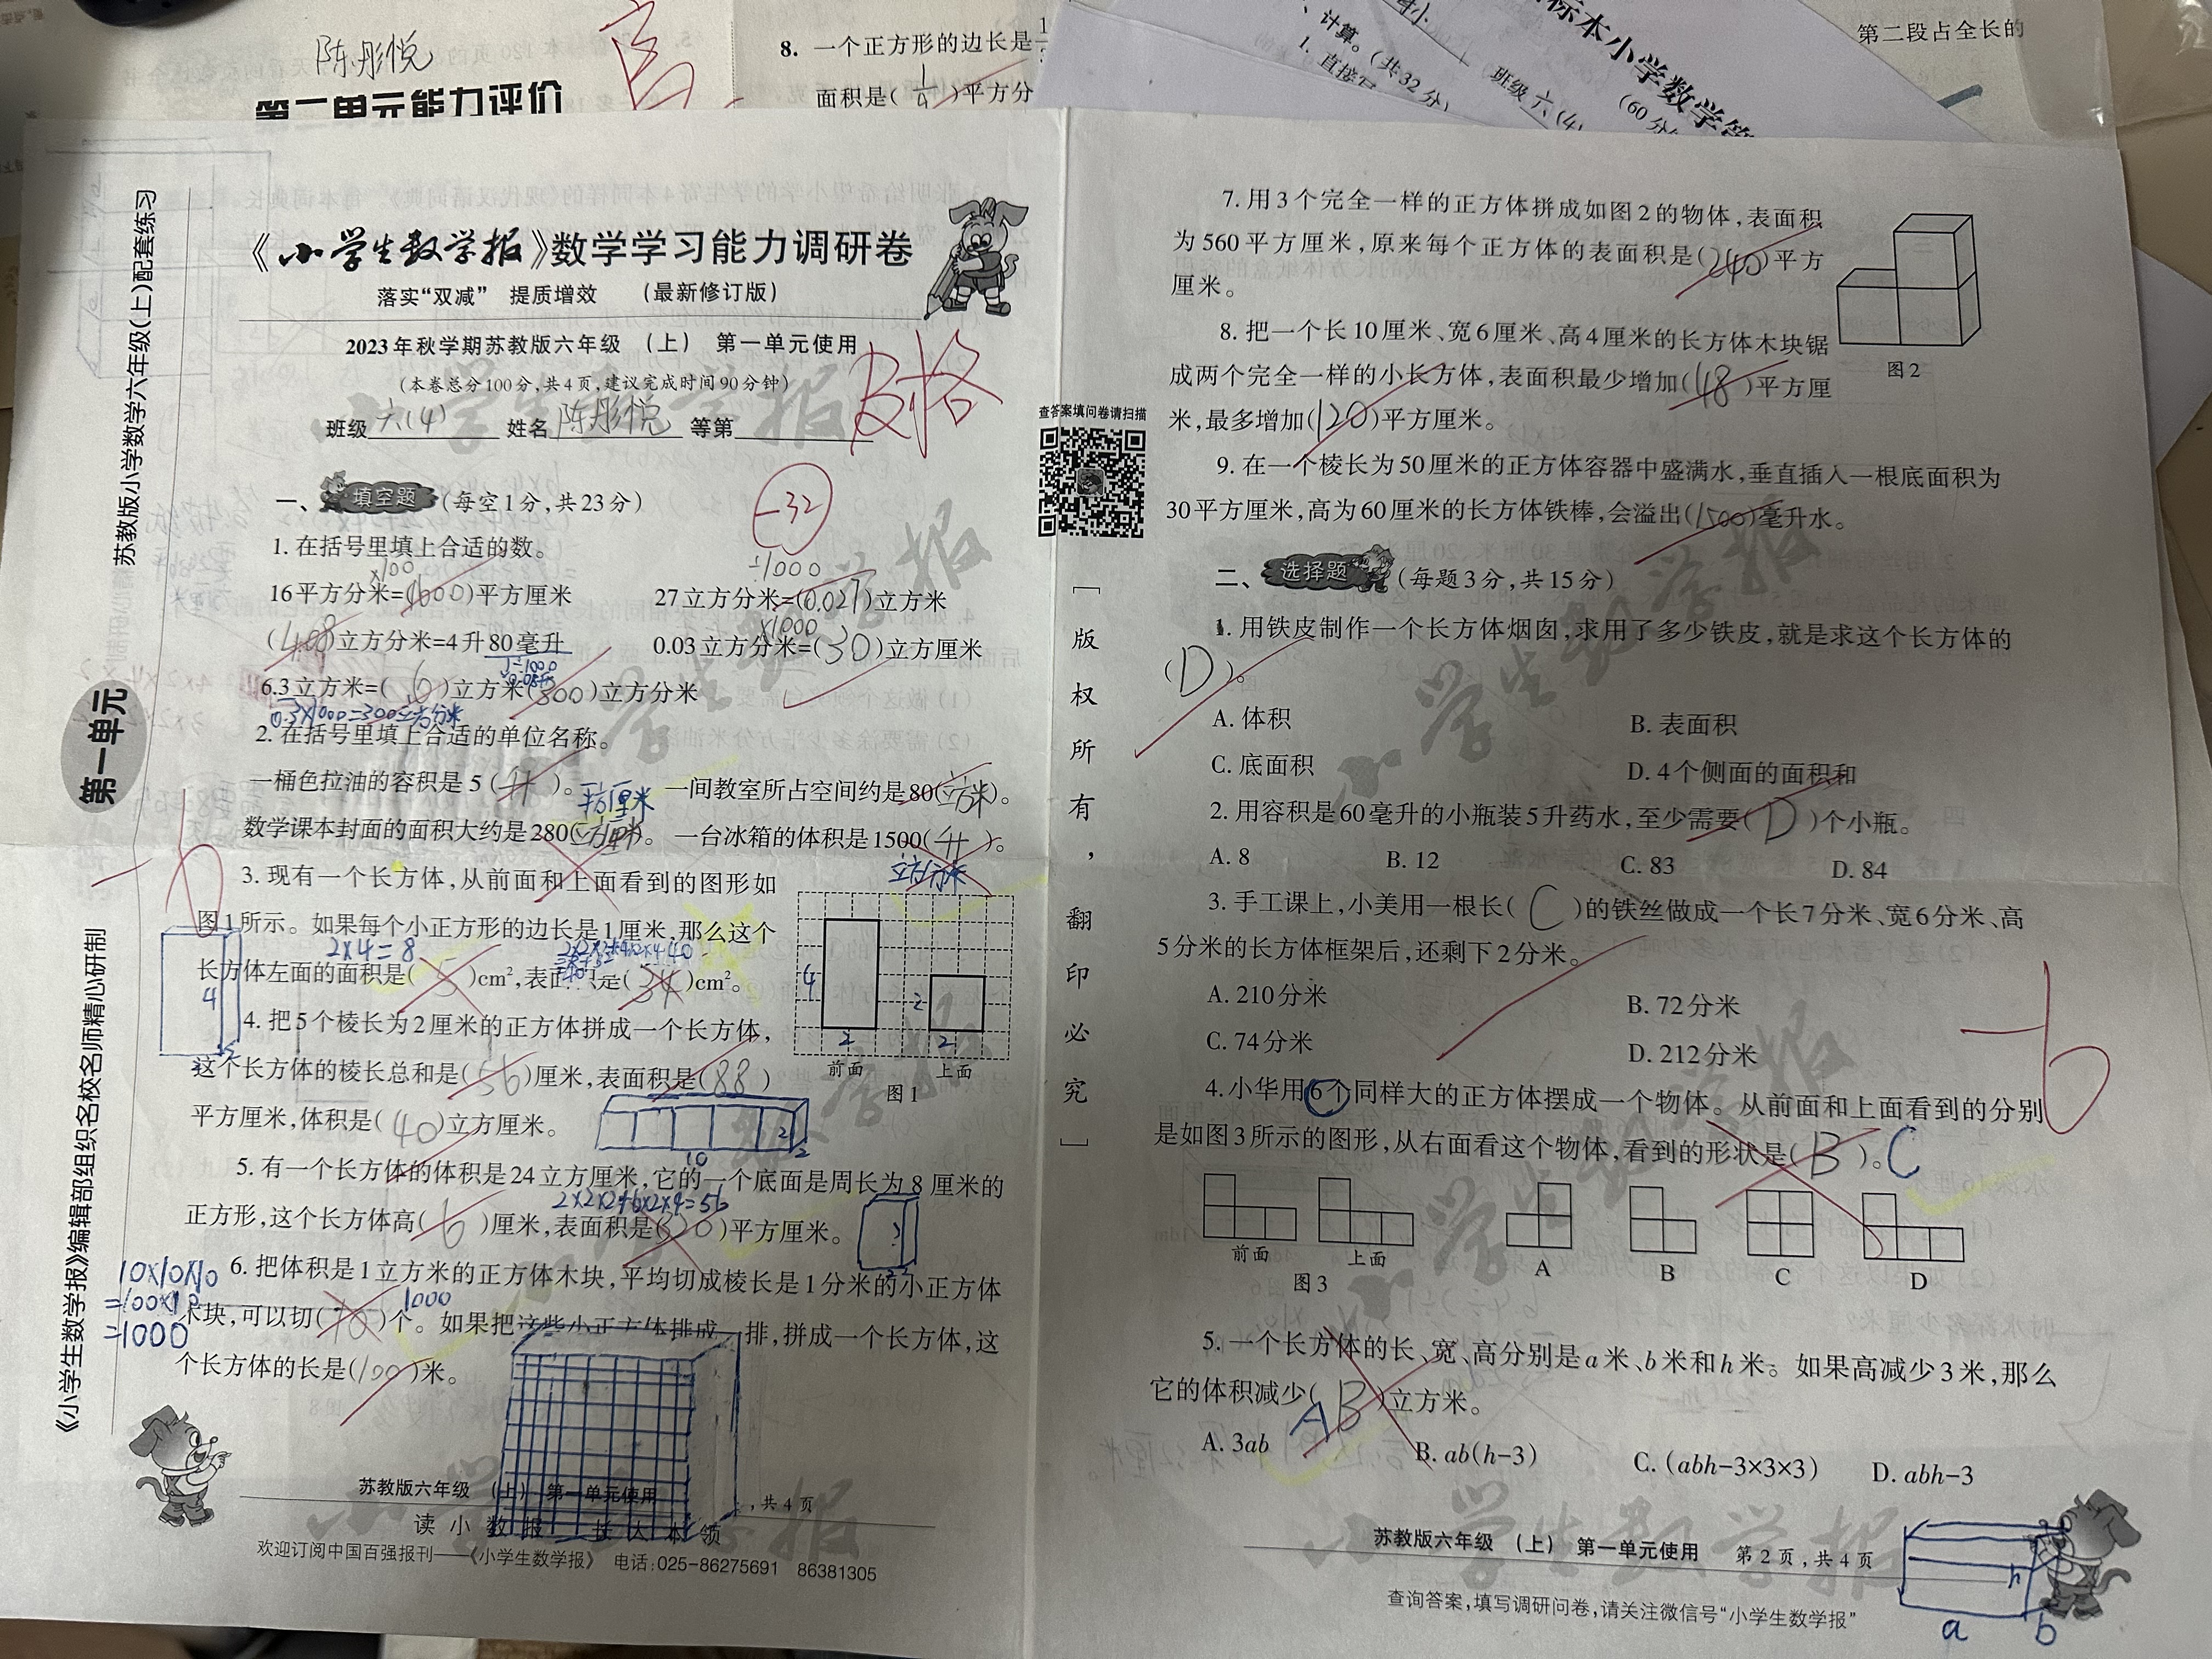 陈彤悦
第一单元能力评价
8. 一个正方形的边长是
面积是( )平方分
计算。(共32分)
1. 直接写
标本小学数学
班级六(4)
(60分
第二段占全长的
苏教版小学数学六年级(上)配套练习
第一单元
《小学生数学报》编辑部组织名校名师精心研制
《小学生数学报》数学学习能力调研卷
落实“双减” 提质增效 (最新修订版)
2023年秋学期苏教版六年级 (上) 第一单元使用
(本卷总分100分,共4页,建议完成时间90分钟)
班级六(4) 姓名陈彤悦 等第
B格
-32
一、填空题(每空1分,共23分)
1. 在括号里填上合适的数。
×100
÷1000
16平方分米=(1600)平方厘米 27立方分米=(0.027)立方米
×1000
(4.08)立方分米=4升80毫升 0.03立方分米=(30)立方厘米
6.3立方米=(6)立方米(300)立方分米
0.3×1000=300立方分米
2. 在括号里填上合适的单位名称。
一桶色拉油的容积是5(升)。 一间教室所占空间约是80(立方米)。
平方厘米
数学课本封面的面积大约是280( )。 一台冰箱的体积是1500(升)。
-6
立方分米
3. 现有一个长方体,从前面和上面看到的图形如
图1所示。如果每个小正方形的边长是1厘米,那么这个
2×4=8
长方体左面的面积是(5)cm²,表面积是(34)cm²。
4
2
2
2
前面 上面
图1
4. 把5个棱长为2厘米的正方体拼成一个长方体,
这个长方体的棱长总和是(56)厘米,表面积是(88)
平方厘米,体积是(40)立方厘米。
10
2
2
5. 有一个长方体的体积是24立方厘米,它的一个底面是周长为8厘米的
2×2×2+6×2×4=56
正方形,这个长方体高(6)厘米,表面积是( )平方厘米。
6. 把体积是1立方米的正方体木块,平均切成棱长是1分米的小正方体
10×10×10
=100×10
=1000
木块,可以切(10)个。1000 如果把这些小正方体排成一排,拼成一个长方体,这
个长方体的长是(100)米。
苏教版六年级 (上) 第一单元使用 ,共4页
读小数报 长大本领
欢迎订阅中国百强报刊——《小学生数学报》 电话:025-86275691 86381305
查答案填问卷请扫描
[版权所有,翻印必究]
7. 用3个完全一样的正方体拼成如图2的物体,表面积
为560平方厘米,原来每个正方体的表面积是(240)平方
厘米。
图2
8. 把一个长10厘米、宽6厘米、高4厘米的长方体木块锯
成两个完全一样的小长方体,表面积最少增加(48)平方厘
米,最多增加(120)平方厘米。
9. 在一个棱长为50厘米的正方体容器中盛满水,垂直插入一根底面积为
30平方厘米,高为60厘米的长方体铁棒,会溢出(1500)毫升水。
二、选择题(每题3分,共15分)
1. 用铁皮制作一个长方体烟囱,求用了多少铁皮,就是求这个长方体的
(D)。
A. 体积 B. 表面积
C. 底面积 D. 4个侧面的面积和
2. 用容积是60毫升的小瓶装5升药水,至少需要(D)个小瓶。
A. 8 B. 12 C. 83 D. 84
3. 手工课上,小美用一根长(C)的铁丝做成一个长7分米、宽6分米、高
5分米的长方体框架后,还剩下2分米。
A. 210分米 B. 72分米
C. 74分米 D. 212分米
-6
4. 小华用6个同样大的正方体摆成一个物体。从前面和上面看到的分别
是如图3所示的图形,从右面看这个物体,看到的形状是(B)。C
前面 上面 A B C D
图3
5. 一个长方体的长、宽、高分别是a米、b米和h米。如果高减少3米,那么
它的体积减少(B)立方米。
A
A. 3ab B. ab(h-3) C. (abh-3×3×3) D. abh-3
苏教版六年级 (上) 第一单元使用 第2页,共4页
查询答案,填写调研问卷,请关注微信号“小学生数学报”
h
a b